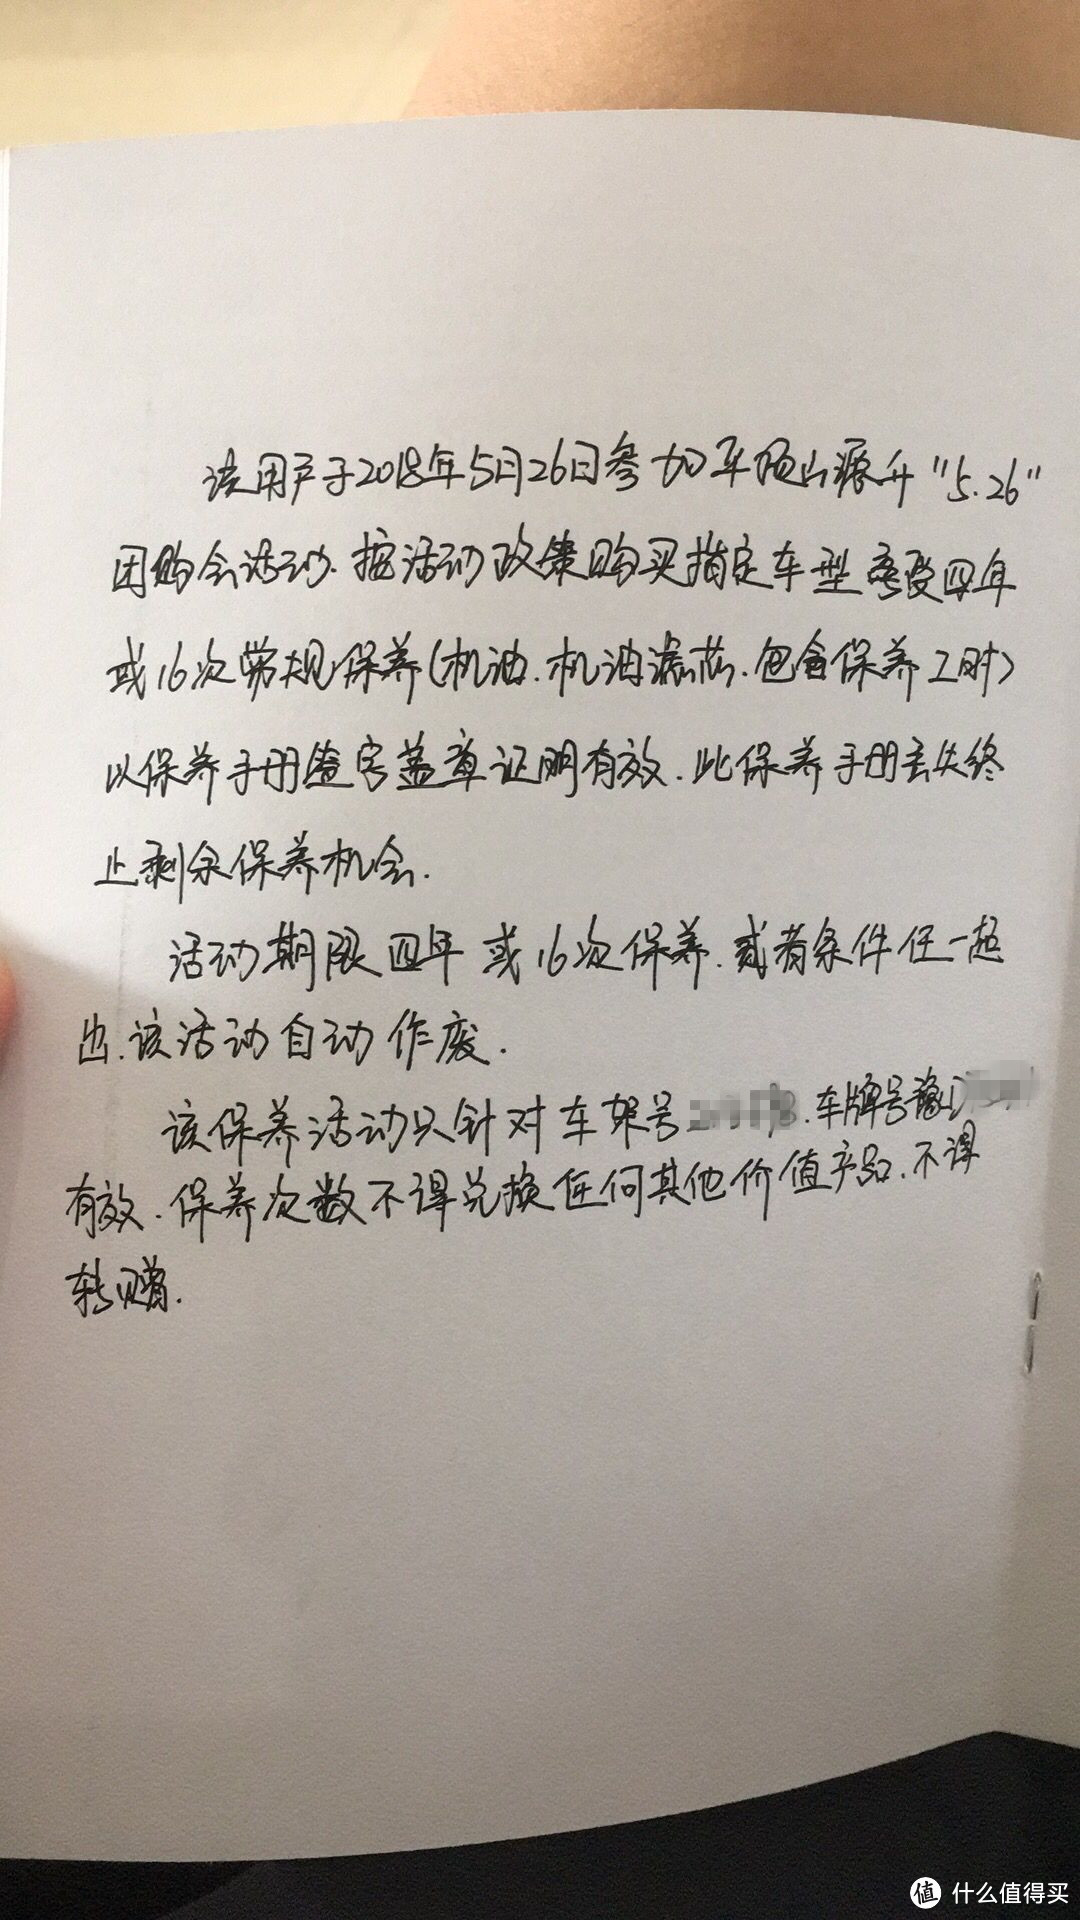 该用户于2018年5月26日参加平顶山源升"5.26"
团购会活动.按活动政策购买指定车型享受四年
或16次常规保养(机油.机油滤芯.包含保养工时)
以保养手册签字盖章证明有效.此保养手册丢失终
止剩余保养机会.
活动期限四年或16次保养.或者条件任一超
出.该活动自动作废.
该保养活动只针对车架号 .车牌号豫D
有效.保养次数不得兑换任何其他价值产品.不得
转赠.
值 什么值得买